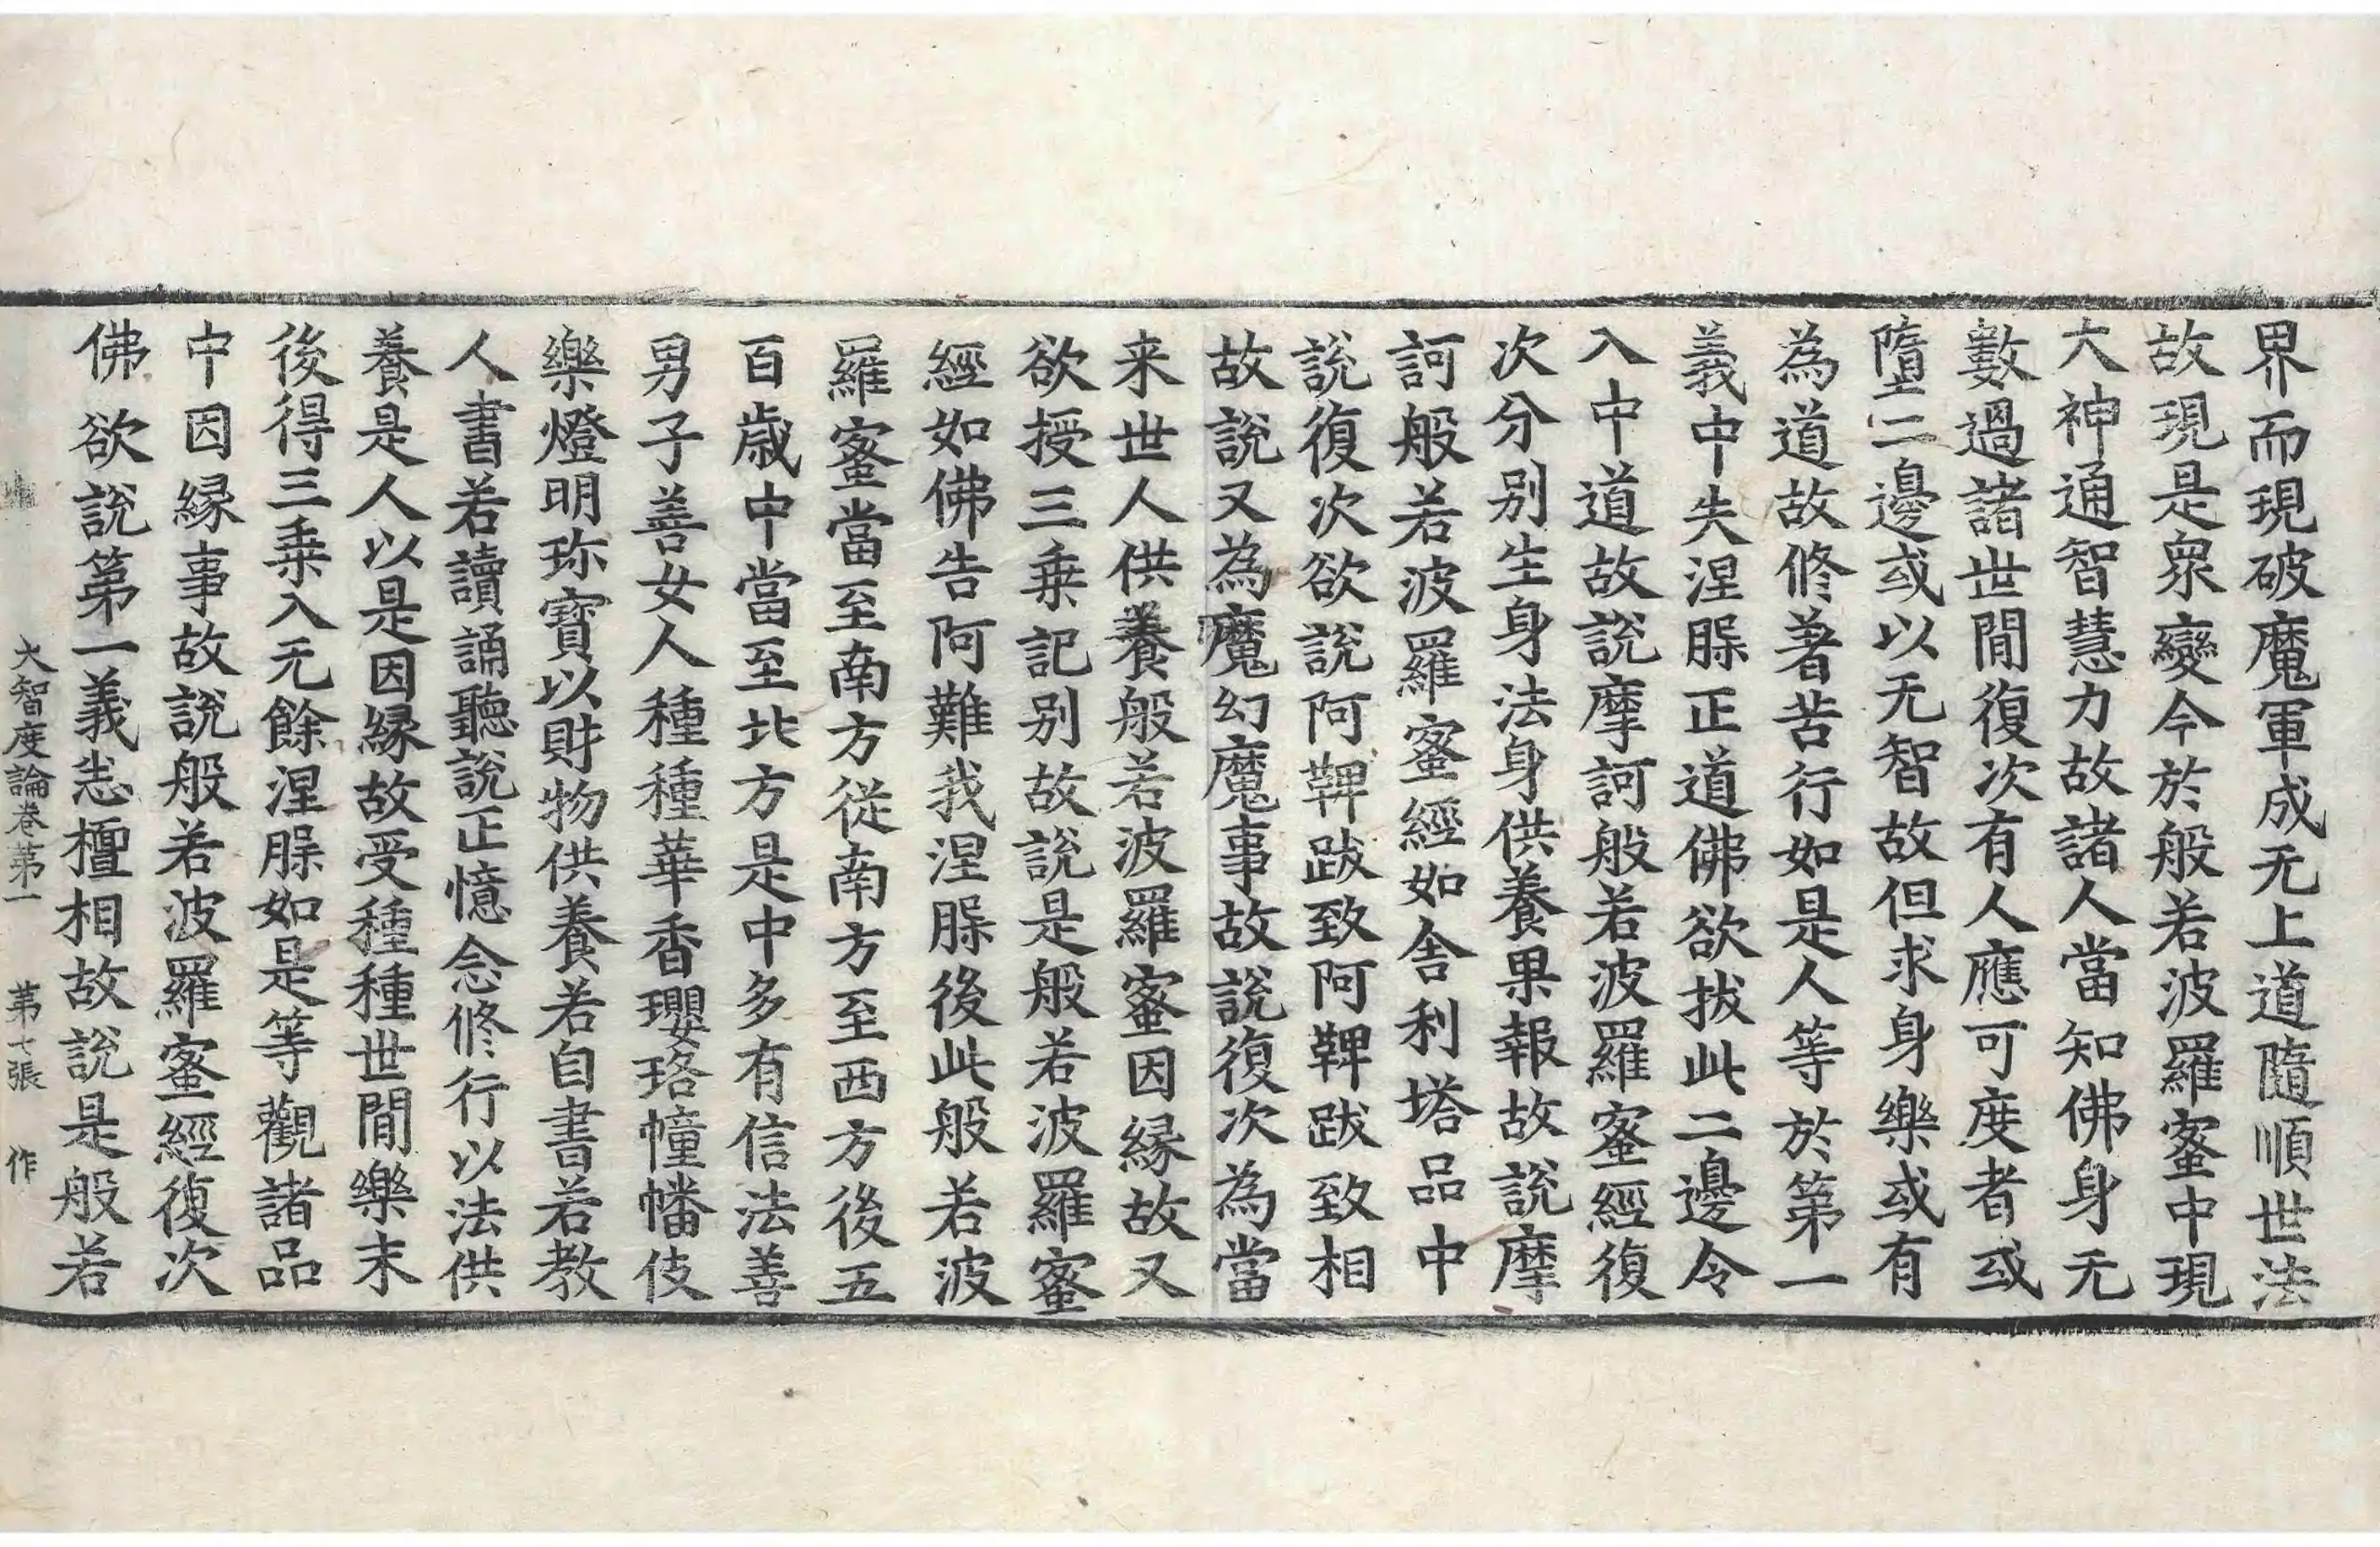 界而現破魔軍成无上道隨順世法
故現是衆變今於般若波羅蜜中現
大神通智慧力故諸人當知佛身无
數過諸世閒復次有人應可度者或
墮二邊或以无智故但求身樂或有
為道故修著苦行如是人等於第一
義中失涅槃正道佛欲拔此二邊令
入中道故說摩訶般若波羅蜜經復
次分別生身法身供養果報故說摩
訶般若波羅蜜經如舍利塔品中
說復次欲說阿鞞跋致阿鞞跋致相
故說又為魔幻魔事故說復次為當
来世人供養般若波羅蜜因縁故又
欲授三乗記別故說是般若波羅蜜
經如佛告阿難我涅槃後此般若波
羅蜜當至南方從南方至西方後五
百歳中當至北方是中多有信法善
男子善女人種種華香瓔珞幢幡伎
樂燈明珎寶以財物供養若自書若教
人書若讀誦聽說正憶念修行以法供
養是人以是因縁故受種種世閒樂末
後得三乗入无餘涅槃如是等觀諸品
中因縁事故說般若波羅蜜經復次
佛欲說第一義悉檀相故說是般若
大智度論卷第一 第七張 作